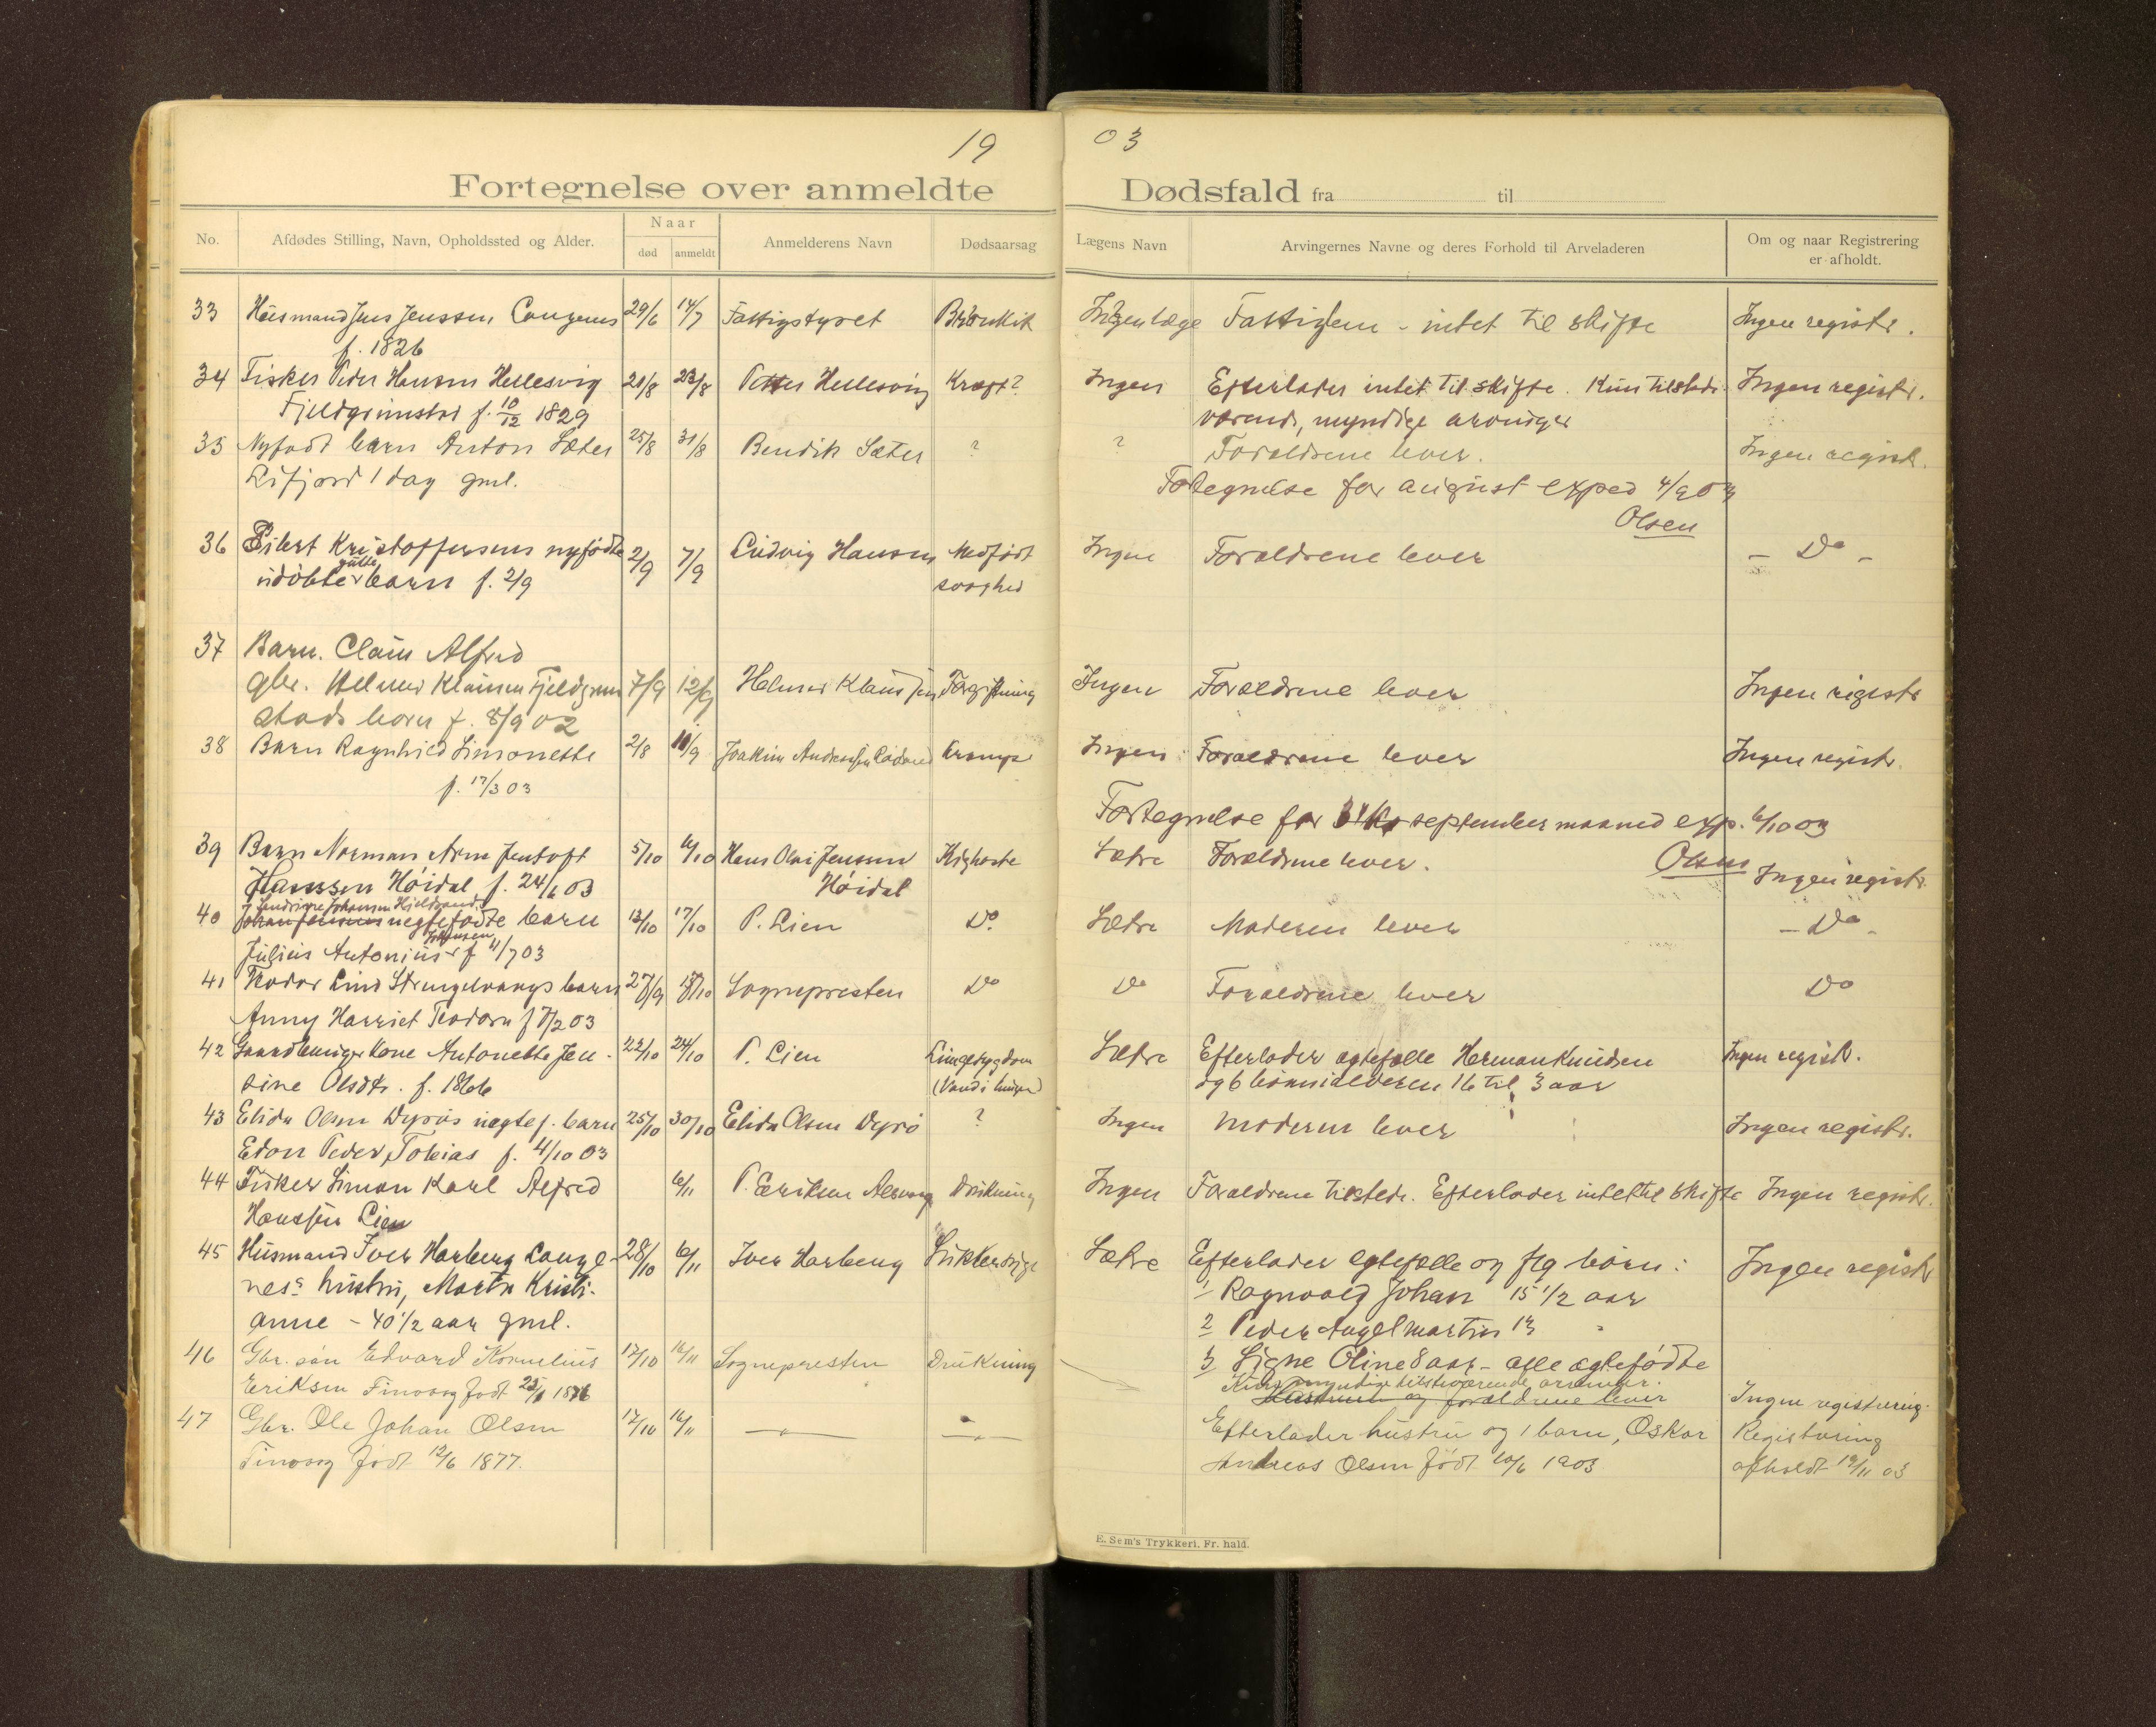 19
03
Fortegnelse over anmeldte
Dødsfald fra til
No.
Afdødes Stilling, Navn, Opholdssted og Alder.
Naar
død
anmeldt
Anmelderens Navn
Dødsaarsag
Lægens Navn
Arvingernes Navne og deres Forhold til Arveladeren
Om og naar Registrering
er afholdt.
33 Husmand Jens Jenssen 29/6 14/7 Fattigstyret Bronkit Ingen læge Fattiglem - intet til skifte Ingen registr.
f. 1826
34 Fisker Peder Hansen Hellesvig 21/8 23/8 Petter Hellesvig Kræft? Ingen Efterlader intet til skifte. Kun tilstede Ingen registr.
Fjeldgrimstad f. 10/12 1829 værende, myndige arvinger
35 Nyfødt barn Anton Sæter 25/8 31/8 Bendik Sæter ? ? Forældrene lever. Ingen registr.
Lifjord 1 dag gml.
Fortegnelse for august exped 4/9 03
Olsen
36 Eilert Kristoffersens nyfødte 2/9 7/9 Ludvig Hansen Medfødt Ingen Forældrene lever - Do -
udøbte gutte barn f. 2/9 svaghed
37 Barn. Claus Alfred
gbr. Helmer Klausen Fjeldgrim 7/9 12/9 Helmer Klaussen Forgiftning Ingen Forældrene lever Ingen registr
stads barn f. 8/9 02
38 Barn Ragnhild Simonette 2/8 11/9 Joakim Andreassen Krampe Ingen Forældrene lever Ingen registr.
f. 17/3 03
Fortegnelse for september maaned exp. 6/10 03
Olsen
39 Barn Norman Arne Jentoft 5/10 6/10 Hans Olai Jenssen Kighoste Sætre Forældrene lever. Ingen registr.
Hanssen Höidal f. 24/6 03 Höidal
40 Johansen negtefødte barn 13/10 17/10 P. Lien Do. Sætre Moderen lever - Do -
Julius Antonius Johansen f 11/7 03
41 Teodor Lind Strengelvaags barn 27/9 18/10 Sognepresten Do Do Forældrene lever Do
Anny Harriet Teodora f 7/2 03
42 Gaardbruger kone Antonette Jen- 22/10 24/10 P. Lien Lungesygdom Sætre Efterlader egtefælle Herman Knudsen Ingen registr.
sine Olsdtr. f. 1866 (Vand i lungen) og 6 børn i alderen 16 til 3 aar
43 Elida Olsen Dyrøs uegtef. barn 25/10 30/10 Elida Olsen Dyrö ? Ingen Moderen lever Ingen registr.
Edon Peder Tobias f. 4/10 03
44 Fisker Simon Karl Alfred 6/11 P. Eriksen Drukning Ingen Forældrene tilstede. Efterlader intet til skifte Ingen registr.
Hanssen Lien
45 Husmand Iver Harberg Lange- 28/10 6/11 Iver Harberg Sukkersyge Sætre Efterlader egtefælle og flg børn: Ingen registr
nes hustru, Marta Kristi- 1 Ragnvald Johan 15 1/2 aar
anne - 40 1/2 aar gml. 2 Peder Angel Martin 13 "
3 Signe Oline 8 aar - alle ægtefødte
46 Gbr. søn Edvard Kornelius 17/10 16/11 Sognepresten Drukning Kun myndige tilstedværende arvinger.
Eriksen Finvaag født 23/1 1876 Hustruen og forældrene lever Ingen registrering.
47 Gbr. Ole Johan Olsen 17/10 16/11 - " - - " - Efterlader hustru og 1 barn, Oskar Registrering
Finvaag født 12/6 1877. Andreas Olsen født 10/6 1903 afholdt 19/11 03
E. Sem's Trykkeri, Fr. hald.